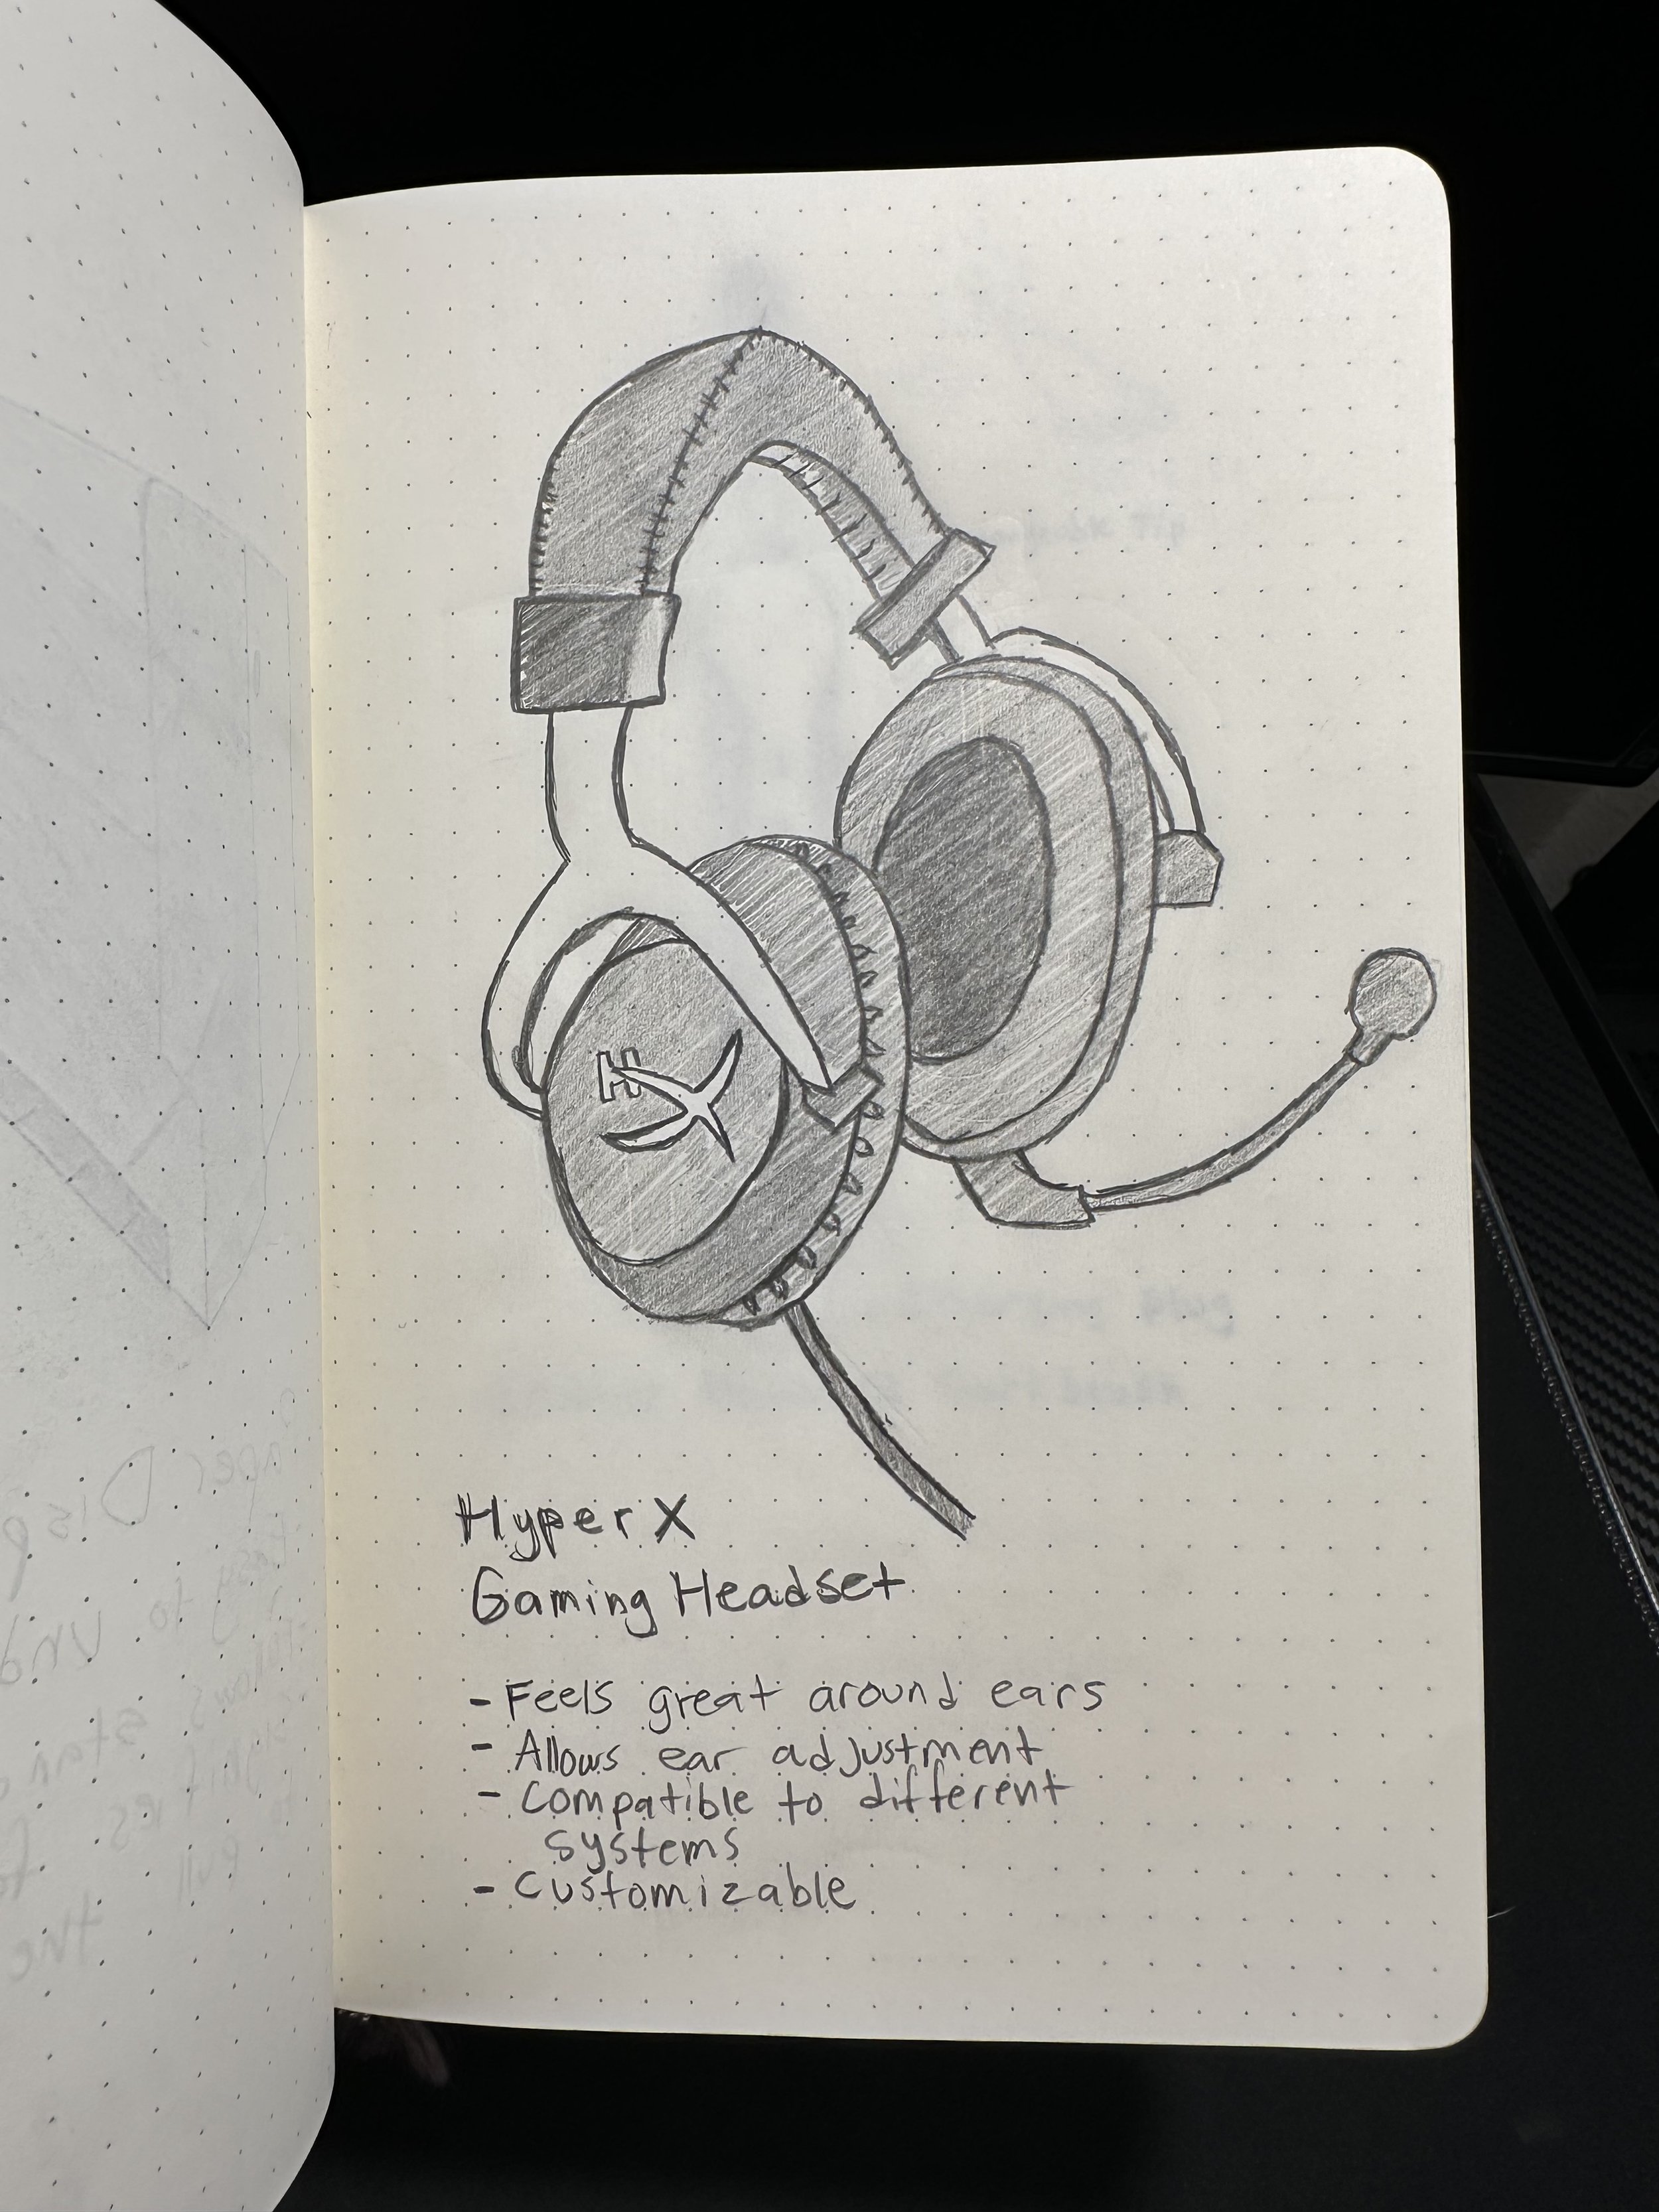 HX
HyperX
Gaming Headset
- Feels great around ears
- Allows ear adjustment
- Compatible to different
systems
- Customizable